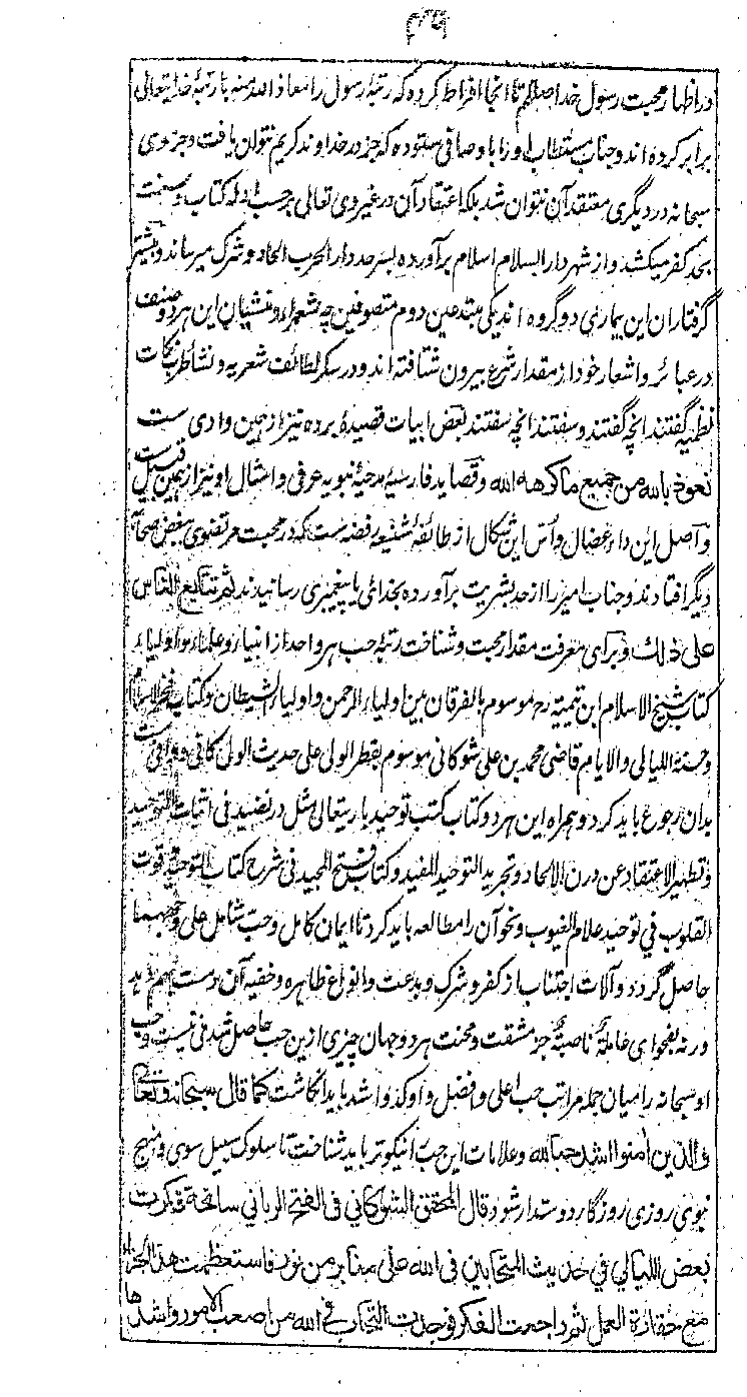 ۳۹
در اظهار محبت رسول خدا صللم تا آنجا افراط کرده که رتبهٔ رسول را معاذ الله منه با رتبهٔ خدا تعالی
برابر کرده اند و جناب مستطاب او را با وصافی ستوده که جز در خداوند کریم نتوان یافت و جز وی
سبحانه در دیگری معتقد آن نتوان شد بلکه اعتقاد آن در غیر وی تعالی بر حسب ادلهٔ کتاب و سنت
بحد کفر میکشد و از شهر دار السلام اسلام برآورده بسرحد دار الحرب الحاد و شرک میرساند و بیشتر
گرفتاران این بیماری دو گروه اند یکی مبتدعین دوم متصوفین چه شعراء و منشیان این هر دو صنف
در عبائر و اشعار خود از مقدار شرع بیرون شتافته اند و در سکر لطائف شعریه و نشأ طرب نکات
نظمیه گفتند انچه گفتند و سفتند انچه سفتند بعض ابیات قصیدهٔ برده نیز از همین وادی ست
نعوذ بالله من جمیع ما کرهه الله و قصاید فارسیهٔ مدحیهٔ نبویه عرفی و امثال او نیز ازین قبیل ست
و اصل این داء عضال و اُس این اشکال از طائفهٔ شیعه رفضه ست که در محبت مرتضوی ببغض صحابهٔ
دیگر افتادند و جناب امیر را از حد بشریت برآورده بخدائی یا پیغمبری رسانیدند ثم تتایع الناس
علی ذلک و برای معرفت مقدار محبت و شناخت رتبهٔ حب هر واحد از انبیاء و علماء و اولیاء
کتاب شیخ الاسلام ابن تیمیه رح موسوم بالفرقان بین اولیاء الرحمن و اولیاء الشیطان و کتاب فخر الاسلام
و حسنة اللیالی و الایام قاضی محمد بن علی شوکانی موسوم بقطر الولی علی حدیث الولی کافی و وافی ست
بدان رجوع باید کرد و همراه این هر دو کتاب کتب توحید باریتعالی مثل در نضید فی اثبات التوحید
و تطهیر الاعتقاد عن درن الالحاد و تجرید التوحید المفید و کتاب فتح المجید فی شرح کتاب التوحید و قوت
القلوب فی توحید علام الغیوب و نحو آن را مطالعه باید کرد تا ایمان کامل و حب شامل علی وجههما
حاصل گردد و آلات اجتناب از کفر و شرک و بدعت و انواع ظاهره و خفیه آن دست بهم دهد
ورنه بفحوای عاملة ناصبة جز مشقت و محنت هر دو جهان چیزی ازین حب حاصل شدنی نیست و حب
او سبحانه را میان جمله مراتب حب اعلی و افضل و اوکد و اشد باید انگاشت کما قال سبحانه و تعالی
والذین امنوا اشد حبا لله و علامات این حب را نیکوتر باید شناخت تا سلوک سبیل سوی و منهج
نبوی روزی روزگار دوستدار شود قال المحقق الشوکانی فی الفتح الربانی سانحة فکرت
بعض اللیالی فی حدیث المتحابین فی الله علی منابر من نور فاستعظمت هذا الجزاء
مع حقارة العمل ثم راجعت الفکر فوجدت التحابب فی الله من اصعب الامور و اشدها